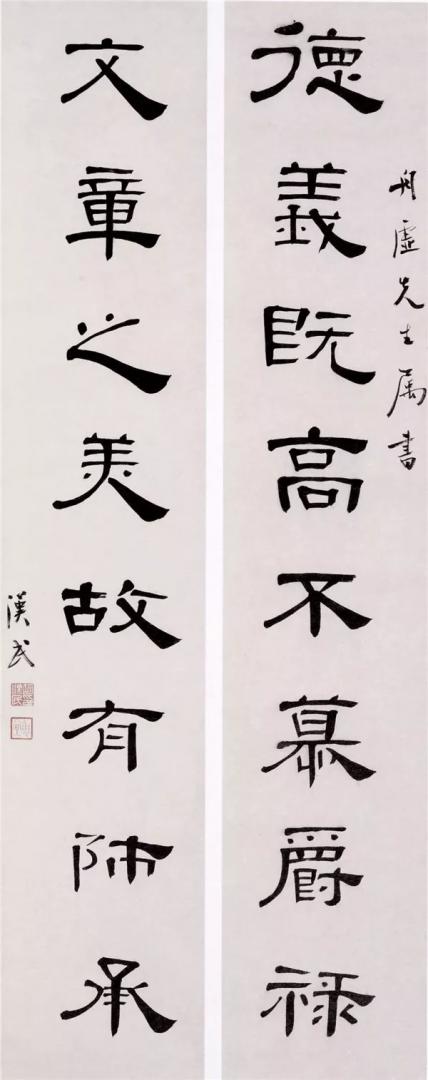 舟虛先生属書
德義既高不慕爵祿
文章之美故有師承
漢民